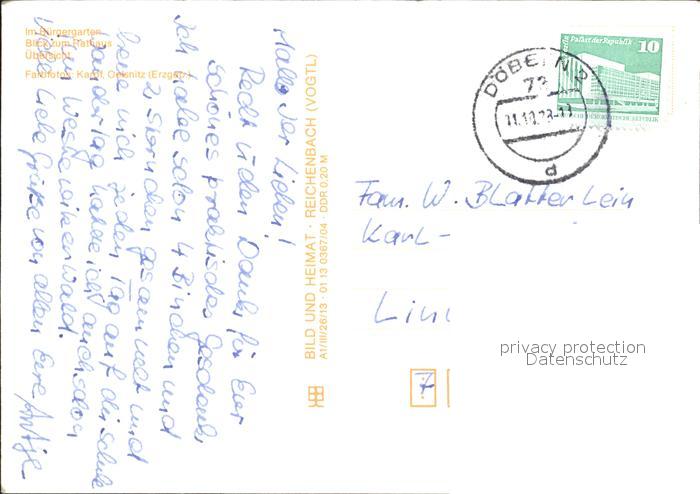 Im Bürgergarten
Blick zum Rathaus
Übersicht
Farbfotos: Karpf, Oelsnitz (Erzgeb.)
Hallo Ihr Lieben!
Recht vielen Dank für Euer
schönes praktisches Geschenk.
Ich habe schon 4 Bienchen und
2 Sternchen gesammelt und
freue mich jeden Tag auf die Schule
Wandertag hatte ich auch schon
zum Westewitzer Wald.
Viele liebe Grüße von allen Eure Antje
BILD UND HEIMAT · REICHENBACH (VOGTL)
A1/III/26/13 · 01 13 0367/04 · DDR 0,20 M
Palast der Republik
10
DÖBELN 2
73
d
Fam. W. Blatterlein
Karl-
7
privacy protection
Datenschutz